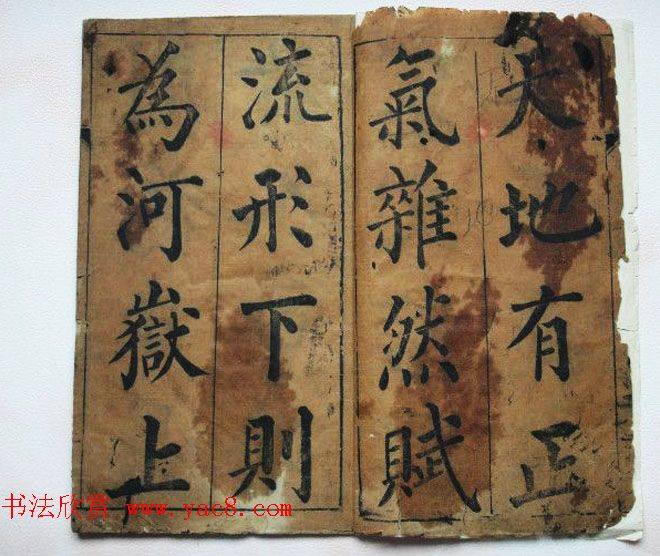 天地有正
氣雜然賦
流形下則
為河嶽上
书法欣赏 www.yac8.com